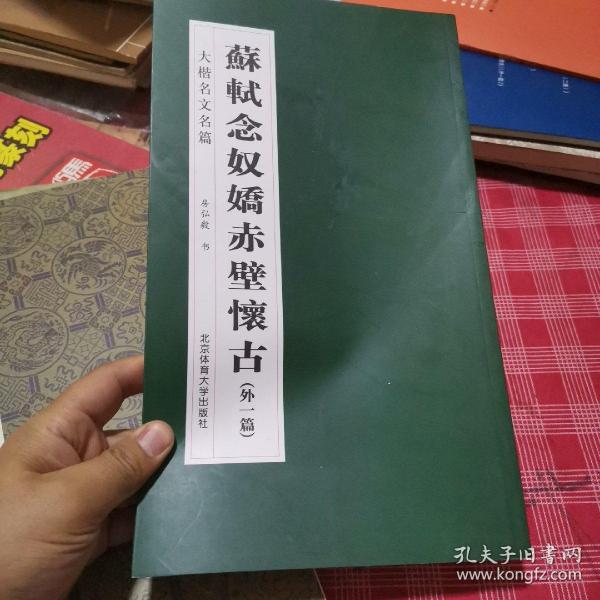 蘇軾念奴嬌赤壁懷古(外一篇)
大楷名文名篇
房弘毅 书
北京体育大学出版社
篆刻
孔夫子旧书网
www.kongfz.com